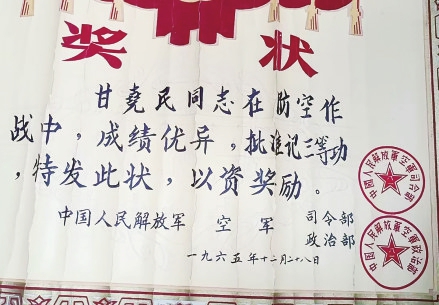 奖状
甘尧民同志在防空作
战中，成绩优异，批准记三等功
，特发此状，以资奖励。
中国人民解放军 空军 司令部
政治部
一九六五年十二月二十八日
中国人民解放军空军司令部
中国人民解放军空军政治部